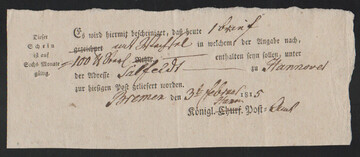 Dieser
Schein
ist auf
Sechs Monate
gültig.
Es wird hiermit bescheiniget, daß heute 1 brief
gezeichnet mit Wechsel in welchem der Angabe nach,
100 enthalten seyn sollen, unter
der Adresse zu Hannover
zur hiesigen Post geliefert worden.
Bremen den 3 febr 1815
Königl. Churf. Post-Amt